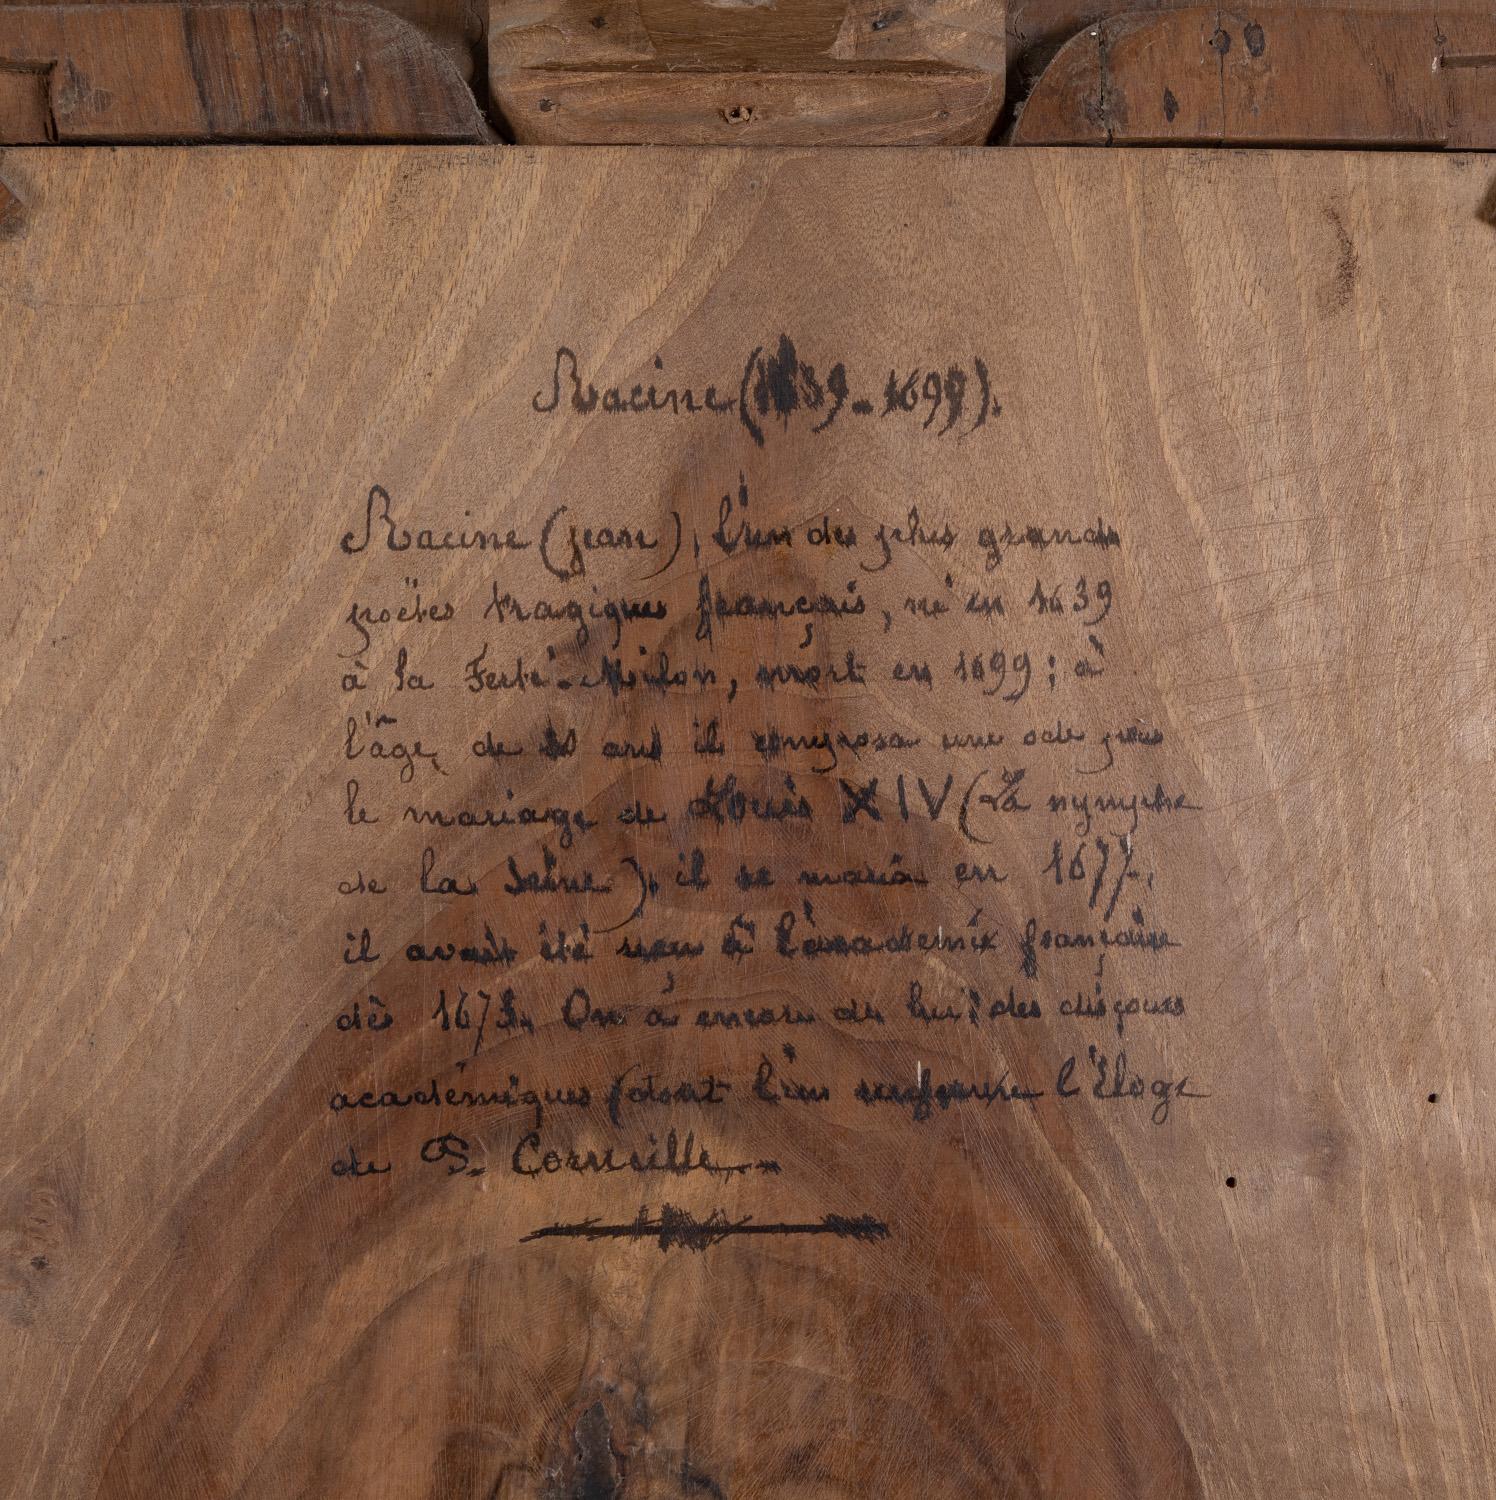 Racine (1639-1699).
Racine (jean), l'un des plus grands
poëtes tragiques français, né en 1639
à la Ferté-Milon, mort en 1699; à
l'âge de ans il composa une ode pour
le mariage de Louis XIV (La nymphe
de la Seine), il se maria en 1677,
il avait été reçu à l'academie française
dès 1673. On a encore de lui: des discours
académiques (dont l'un renferme l'Éloge
de P. Corneille.